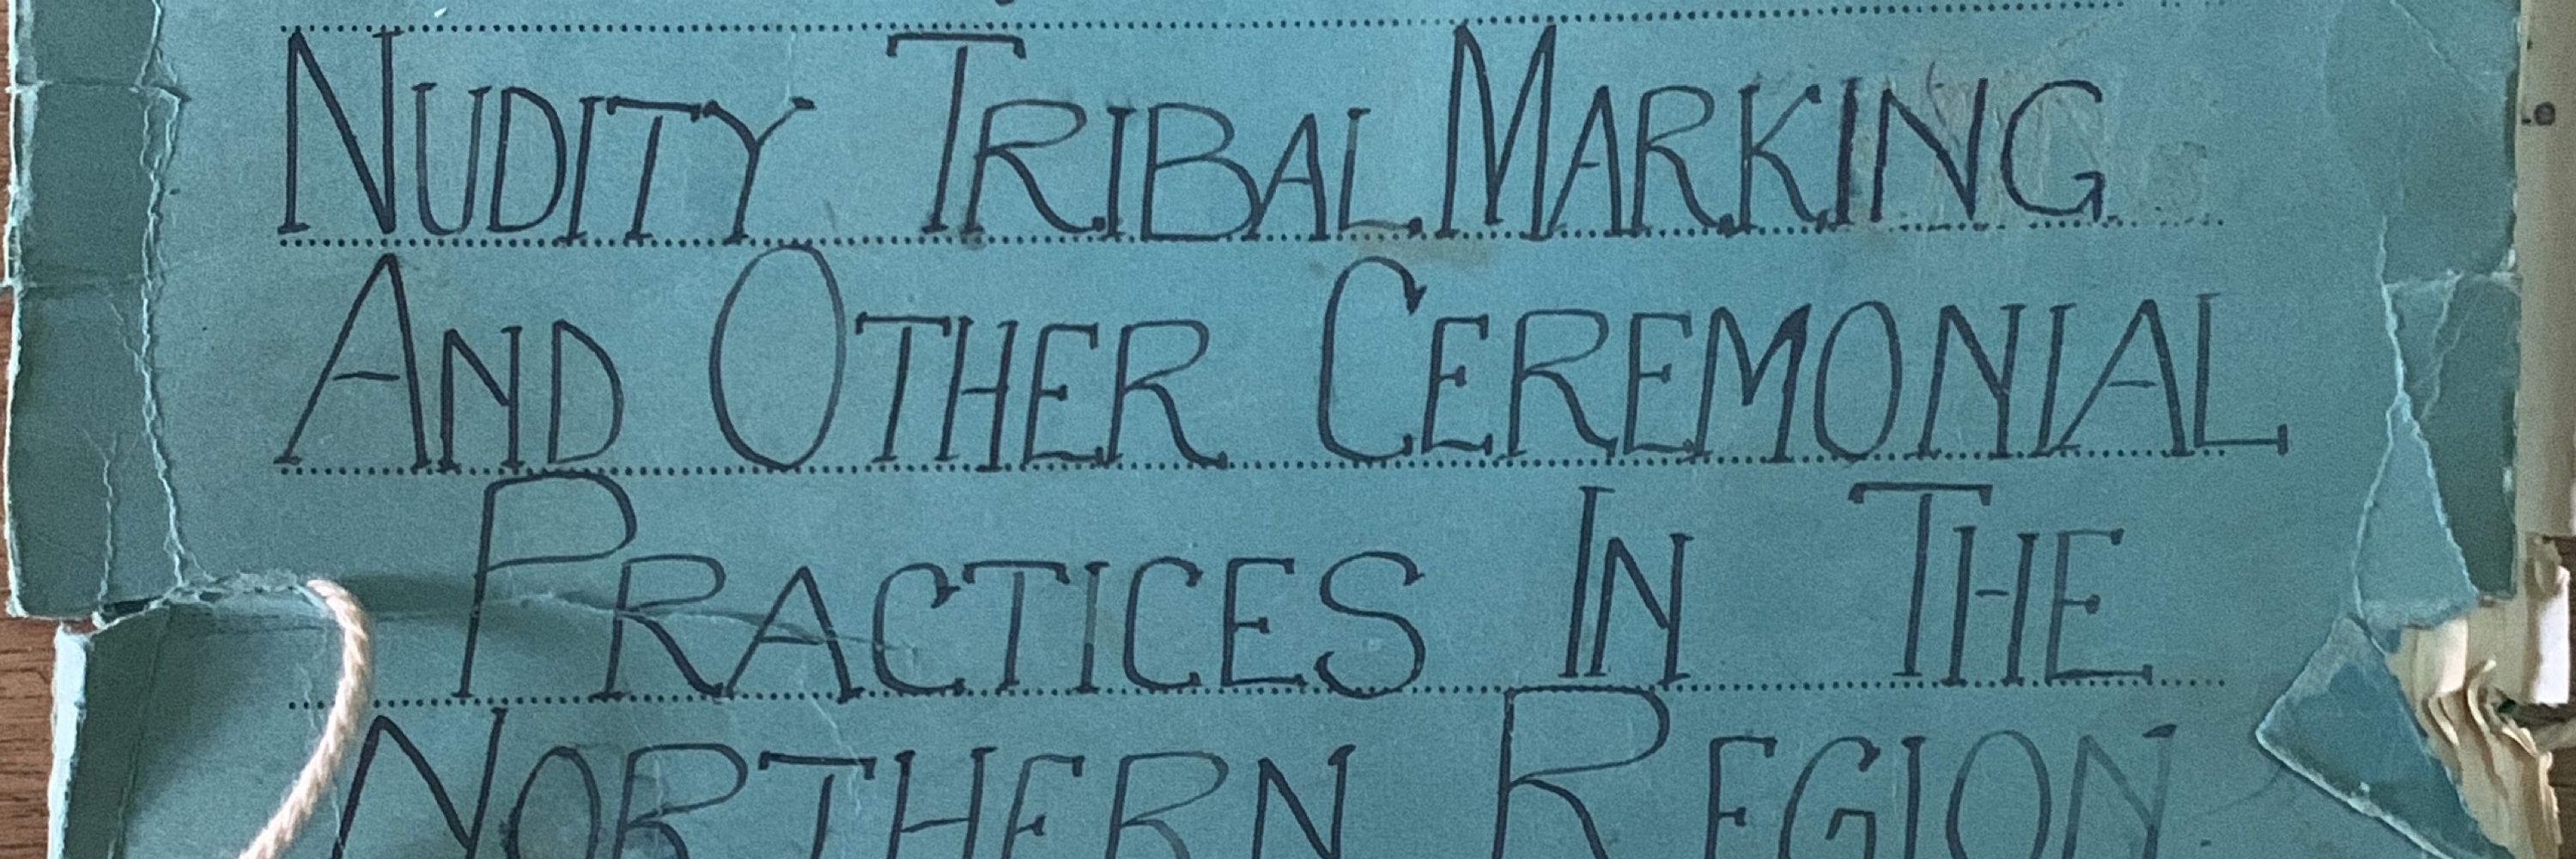 NUDITY TRIBAL MARKING
AND OTHER CEREMONIAL
PRACTICES IN THE
NORTHERN REGION